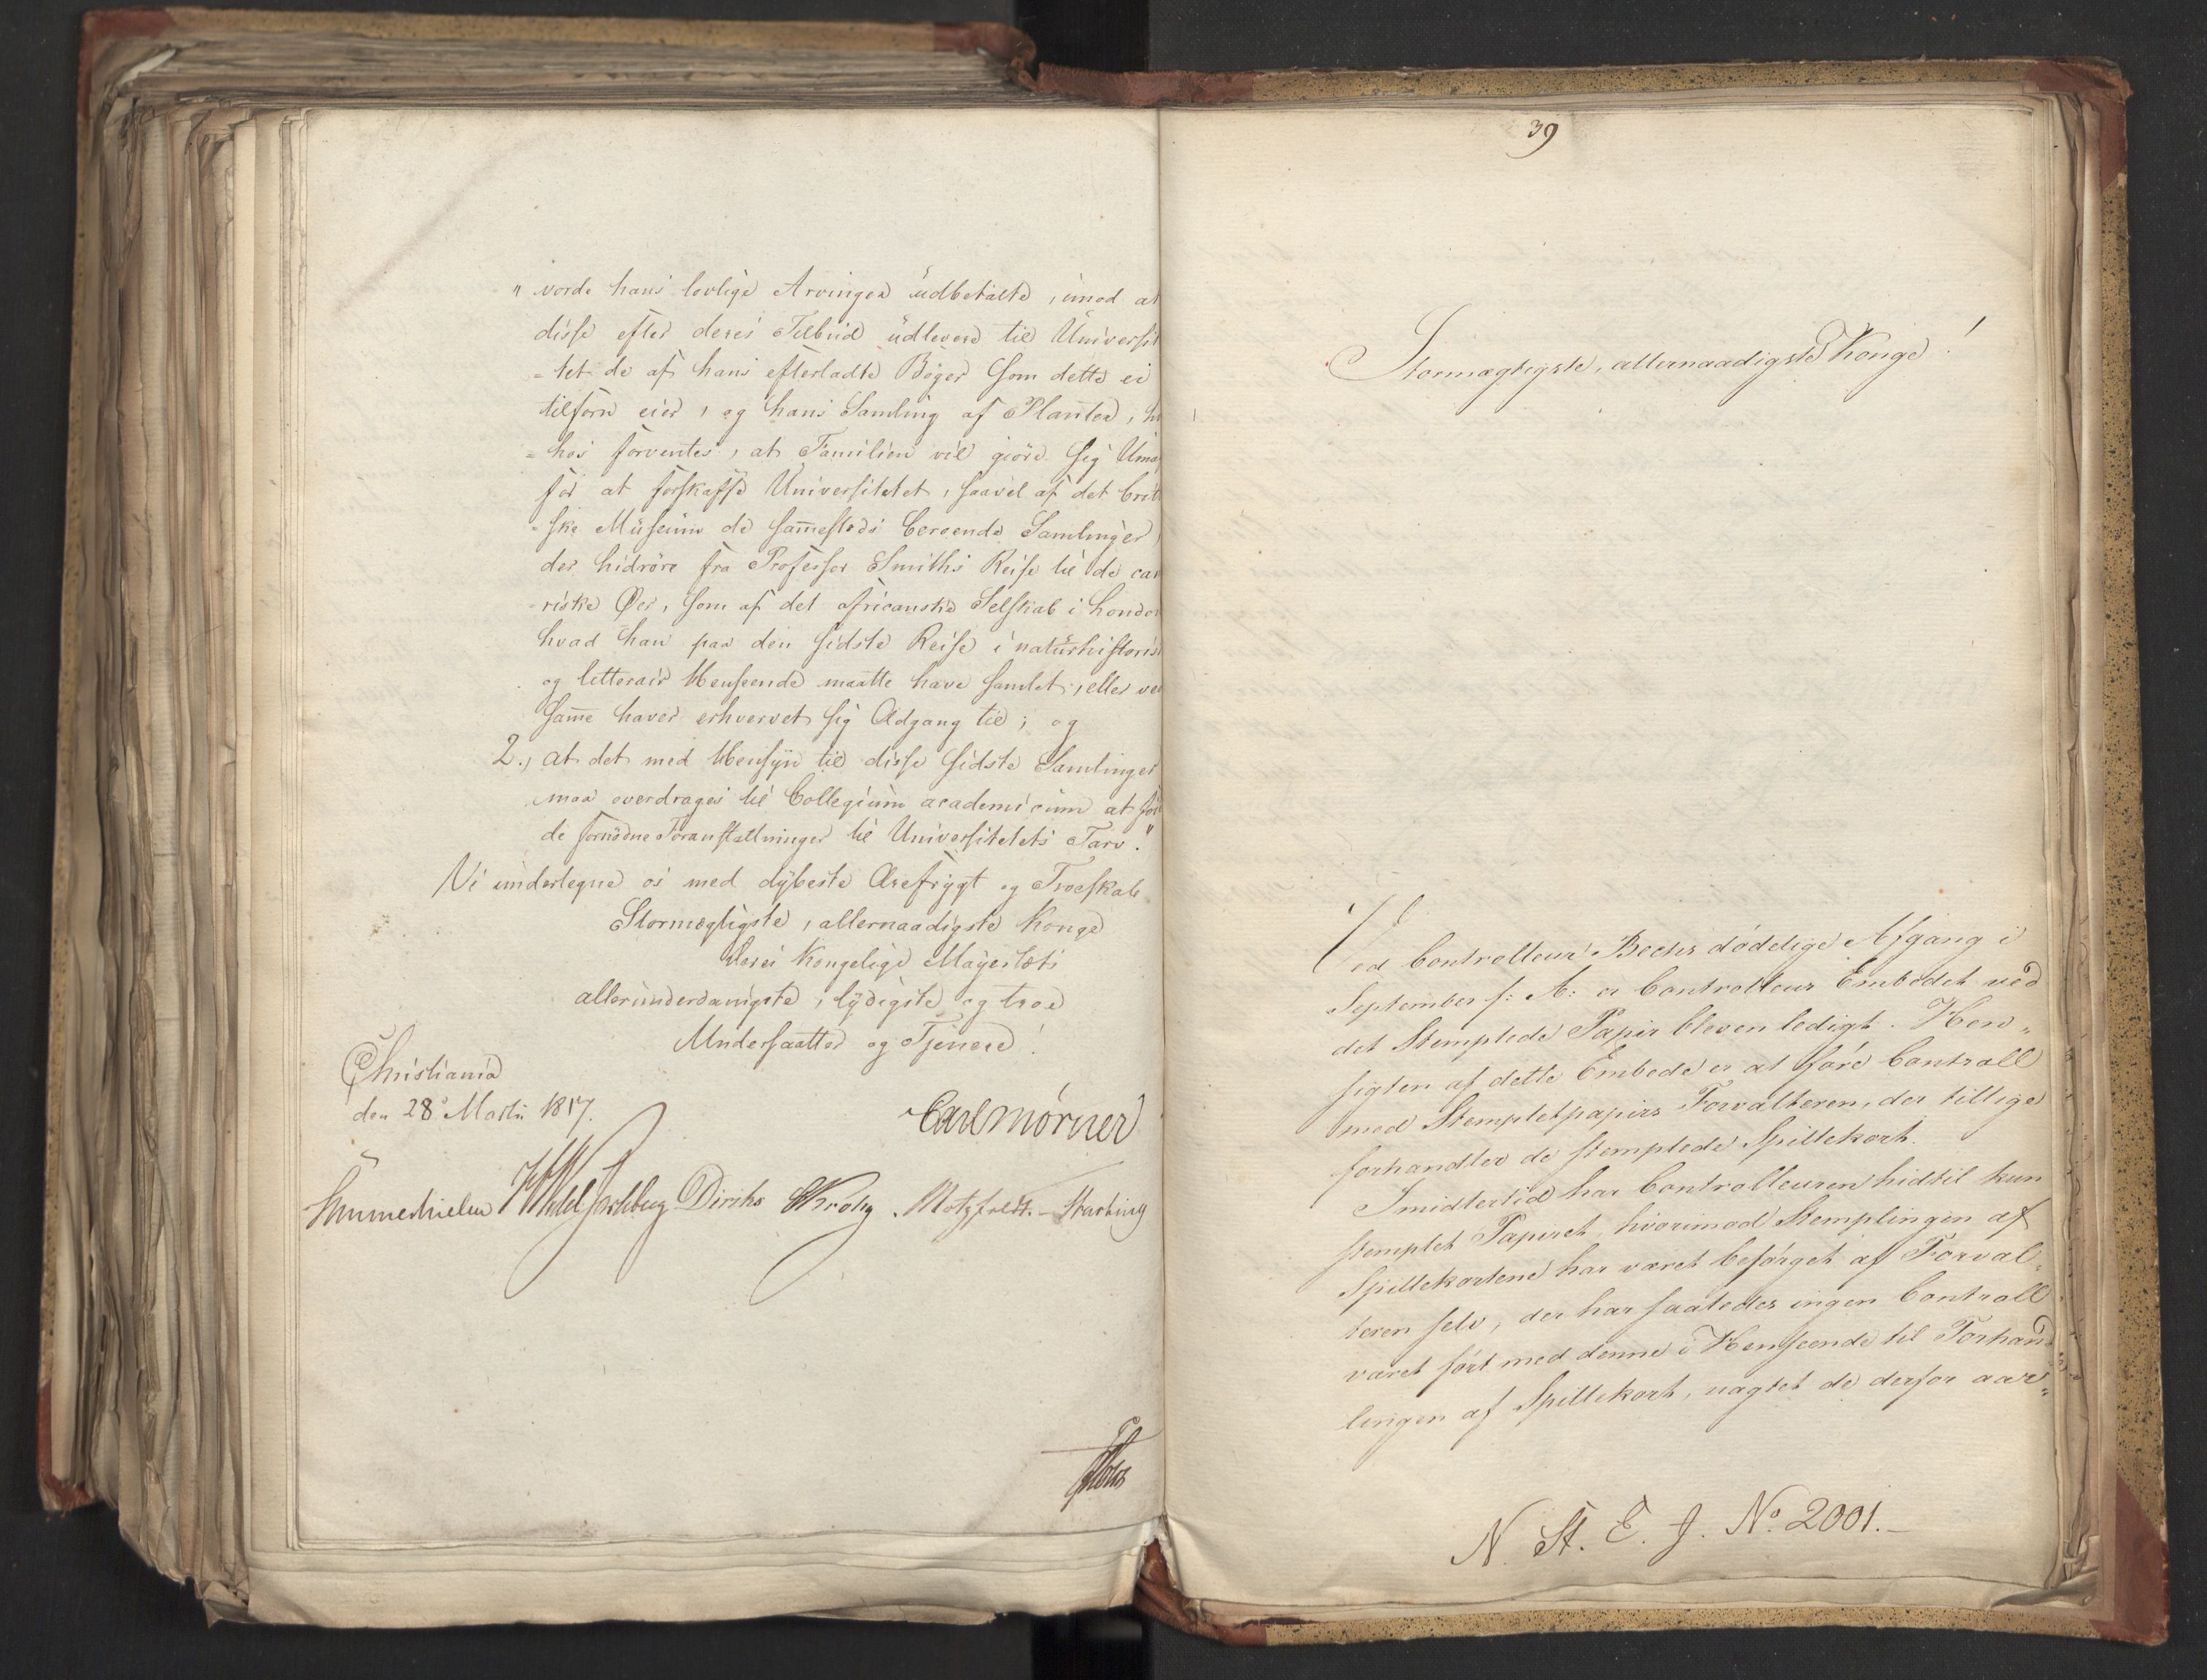 „ vorde hans lovlige Arvinger udbetalte, imod at
disse efter deres Tilbud udlevere til Universit
-tet de af hans efterladte Bøger som dette ei
tilforn eier, og hans Samling af Planter,
- hos forventes, at Familien vil giøre sig Uma
for at forskaffe Universitetet, saavel af det brit
-ske Museum de sammesteds beroende Samlinger,
der hidröre fra Professor Smiths Reise til de can
-riske Øer, som af det africanske Selskab i London
hvad han paa den sidste Reise i naturhistoris
og litterair Henseende maatte have samlet, eller ve
samme haver erhvervet sig Adgang til; og
2., at det med Hensyn til disse sidste Samlinger
maa overdrages til Collegium academicum at föi
de fornödne Foranstaltninger til Universitetets Tarv."
Vi undertegne os med dybeste Ærefrygt og Troeskab
Stormægtigste, allernaadigste Konge
Deres Kongelige Mayestæts
allerunderdanigste, lydigste og troe
Undersaatter og Tjenere!
Christiania
den 28 Martii 1817.
Carl Mörner
Sommerhielm Wedel Jarlsberg Diriks Krohg. Motzfeldt. Starbing
39
Stormægtigste, allernaadigste Konge!
Ved Controlleur Bechs dødelige Afgang i
September f: A: er Controlleur Embedet ved
det Stemplede Papir bleven ledigt. Hen„
sigten af dette Embede er at føre Controll
med Stempletpapirs Forvalteren, der tillige
forhandler de stemplede Spillekort.
Imidlertid har Controlleuren hidtil kun
stemplet Papiret, hvorimod Stemplingen af
Spillekortene har været besørget af Forval„
teren selv; der har saaledes ingen Controll
været ført med denne i Henseende til Forhand„
lingen af Spillekort, uagtet de derfor aar„
N. St. E. J. No. 2001.-